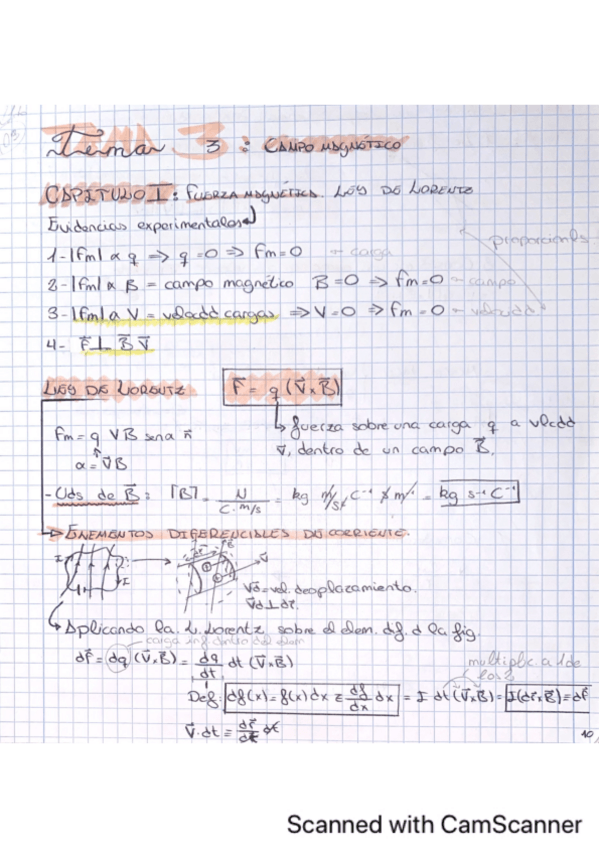 Tema 3 : CAMPO MAGNÉTICO
CAPITULO I : FUERZA MAGNÉTICA. LEY DE LORENTZ
Evidencias experimentales
1- |fm| α q ⇒ q=0 ⇒ fm=0 → carga
proporcional
2- |fm| α B = campo magnético B=0 ⇒ fm=0 → campo
3- |fm| α V = velocdd cargas ⇒ V=0 ⇒ fm=0 → velocidd
4- F⃗ ⊥ B⃗ V⃗
LEY DE LORENTZ F⃗ = q (V⃗ x B⃗)
fuerza sobre una carga q a vlcdd
v⃗, dentro de un campo B⃗.
fm = q VB senα n⃗
α = V⃗B
- Uds de B⃗ : [B] = N / C · m/s = kg m/s² C⁻¹ s m⁻¹ = kg s⁻¹ C⁻¹
ELEMENTOS DIFERENCIALES DE CORRIENTE.
I
I
V⃗
Vd = vel. desplazamiento.
V⃗d ⊥ dr.
Aplicando la L. Lorentz sobre el elem. df. d la fig.
carga inf dentro del elem
dF⃗ = dq (V⃗ x B⃗) = dq/dt dt (V⃗ x B⃗)
multiplic a 1 de los 2
Def: df(x) = f(x) dx = df/dx dx = I dt (V⃗ x B⃗) = I (dr⃗ x B⃗) = dF⃗
V⃗ · dt = dr⃗/dt dt
40
Scanned with CamScanner